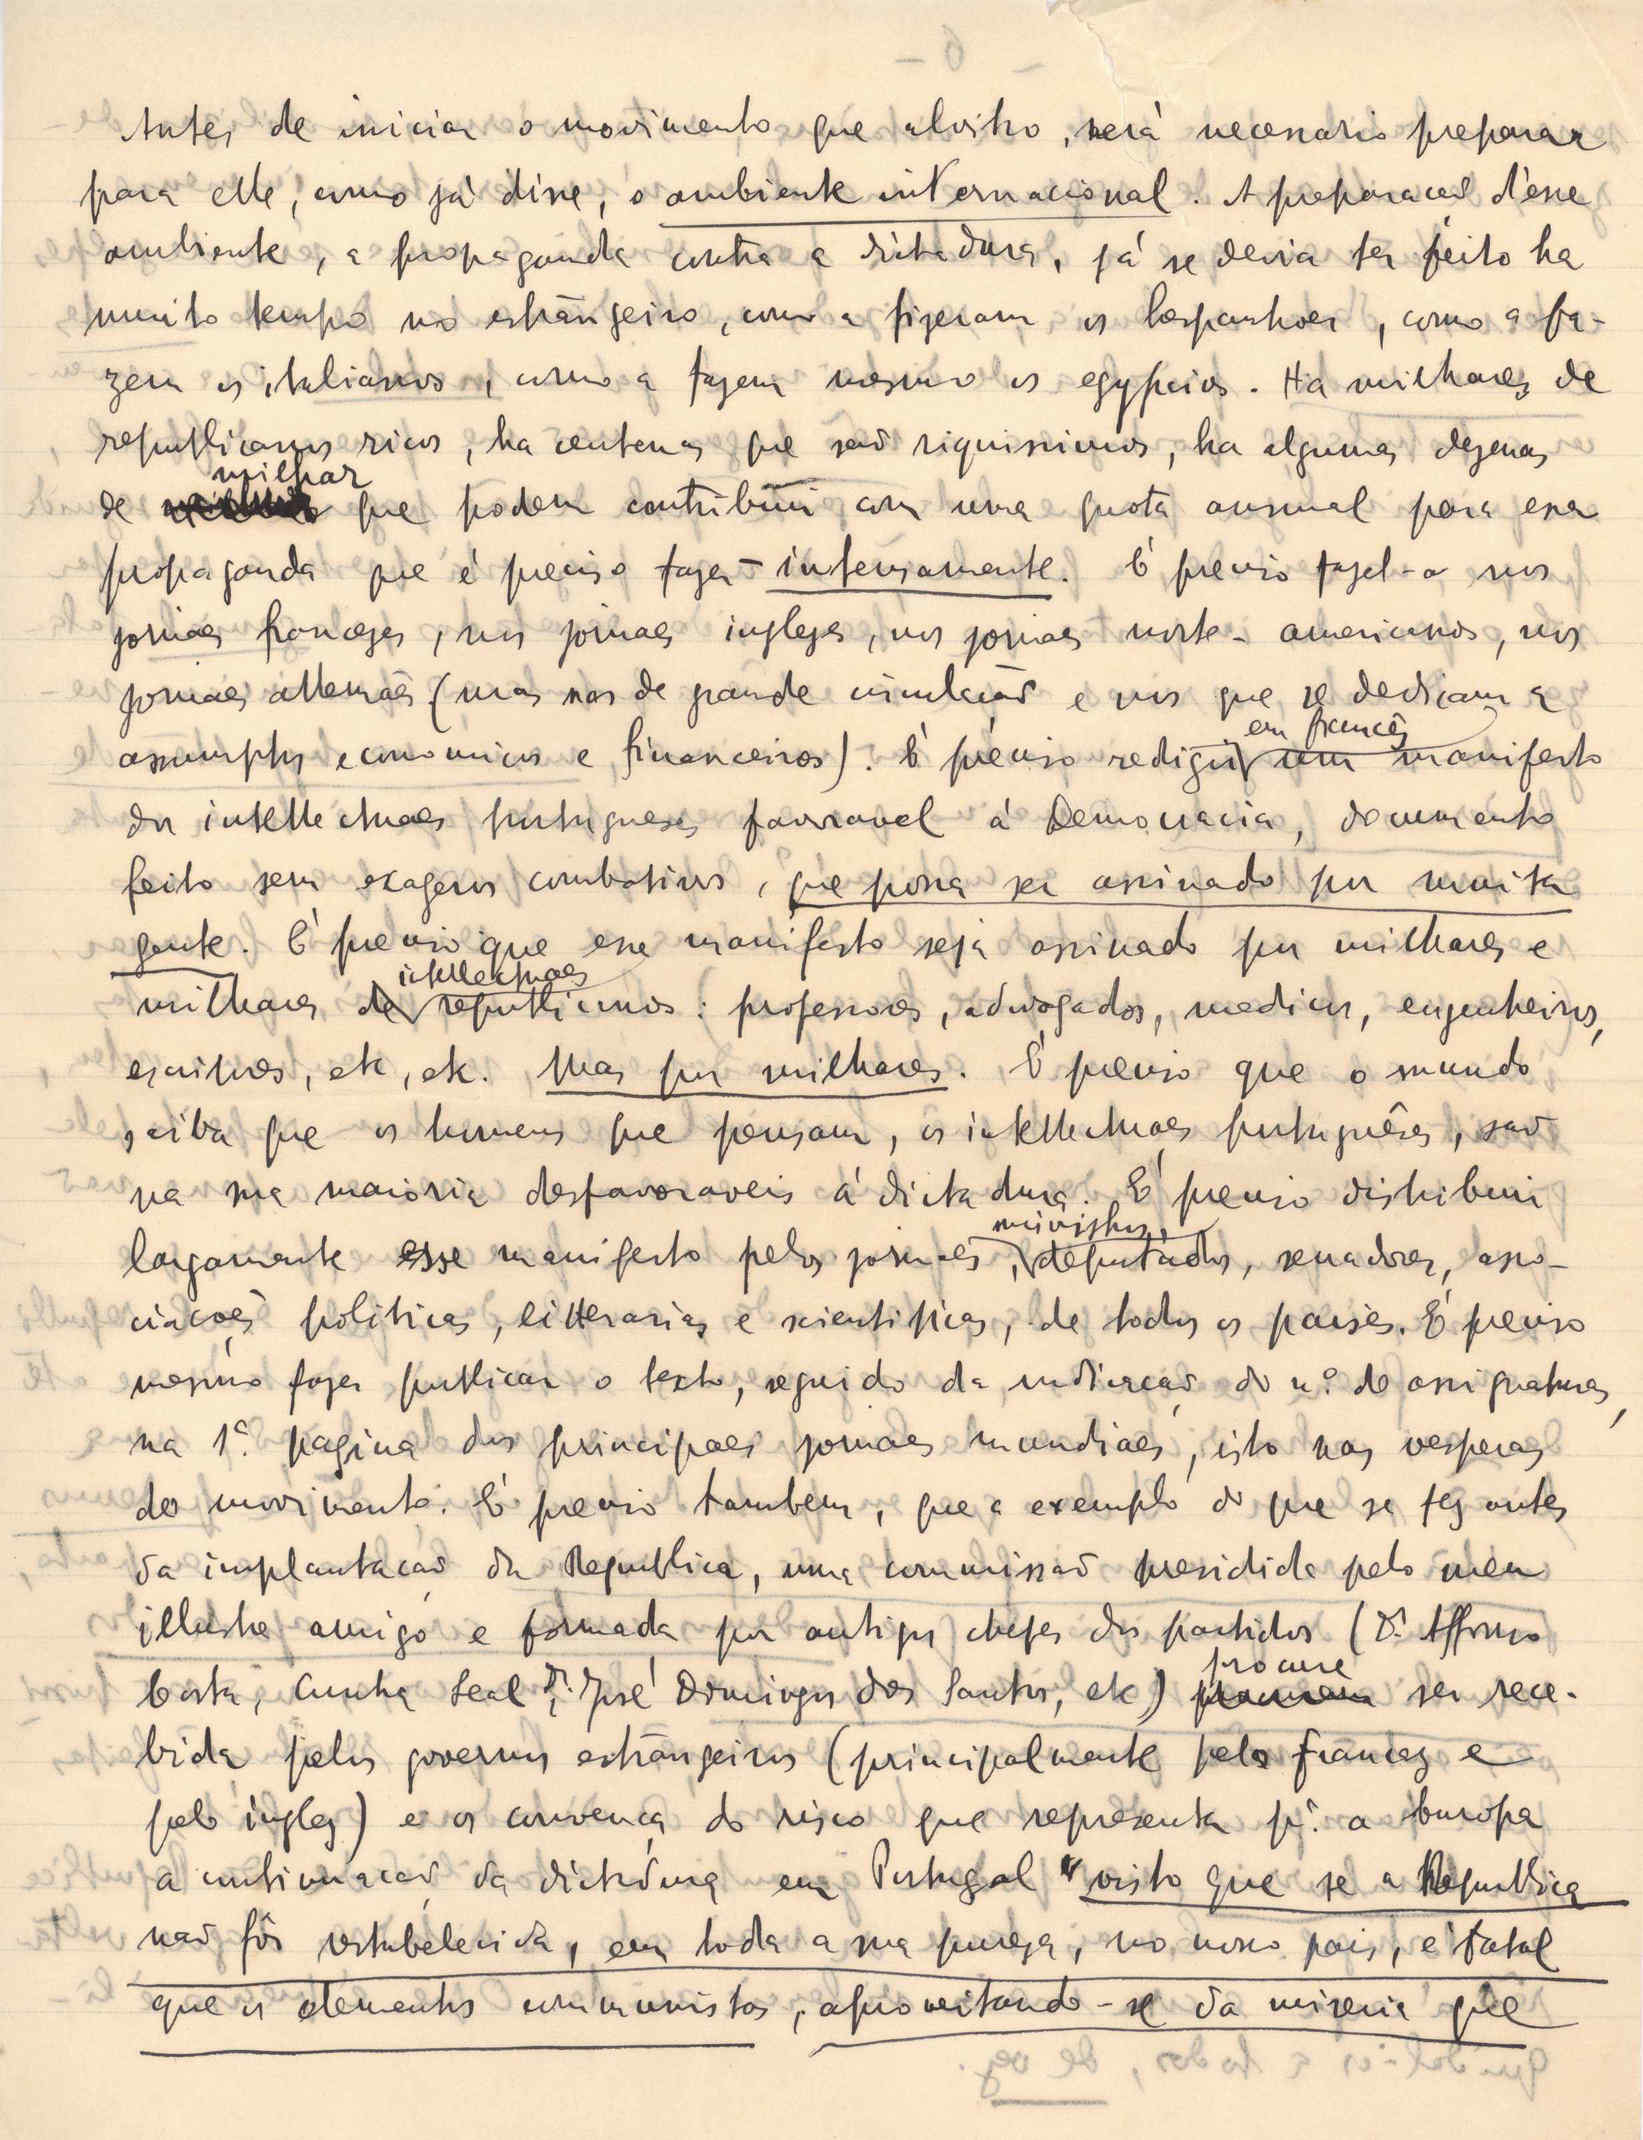 Antes de iniciar o movimento que alvitro, será necessario preparar
para elle, como já disse, o ambiente internacional. A preparação d'esse
ambiente, a propaganda contra a dictadura, já se devia ter feito ha
muito tempo no estrangeiro, como a fizeram os hespanhoes, como a fa-
zem os italianos, como a fazem mesmo os egypcios. Ha milhares de
republicanos ricos, ha centenas que são riquissimos, ha algumas dezenas
milhar
de que podem contribuir com uma quota annual para essa
propaganda que é preciso fazer intensamente. É preciso fazel-a nos
jornaes francezes, nos jornaes inglezes, nos jornaes norte-americanos, nos
jornaes allemães (mas nos de grande circulação e nos que se dedicam a
em francês
assumptos economicos e financeiros). É preciso redigir um manifesto
dos intellectuaes portugueses favoravel á Democracia, documento
feito sem exageros combativos, que possa ser assinado por muita
gente. É preciso que esse manifesto seja assinado por milhares e
intellectuaes
milhares de republicanos: professores, advogados, medicos, engenheiros,
escritores, etc, etc. Mas por milhares. É preciso que o mundo
saiba que os homens que pensam, os intellectuaes portuguêses, são
na sua maioria desfavoraveis á dictadura. É preciso distribuir
ministros,
largamente esse manifesto pelos jornaes, deputados, senadores, asso-
ciações politicas, litterarias e scientificas, de todos os paises. É preciso
mesmo fazer publicar o texto, seguido da indicação do n.º de assignaturas,
na 1ª. pagina dos principaes jornaes mundiaes, isto nas vesperas
do movimento. É preciso tambem, que a exemplo do que se fez antes
da implantação da Republica, uma commissão presidida pelo meu
illustre amigo e formada por antigos chefes dos partidos (Dr. Affonso
procure
Costa, Cunha Leal, Dr. José Domingos dos Santos, etc) ser rece-
bida pelos governos estrangeiros (principalmente pelo francez e
pelo inglez) e os convença do risco que representa pª. a Europa
a continuação da dictadura em Portugal visto que se a Republica
não fôr restabelecida, em toda a sua pureza, no nosso pais, é fatal
que os elementos communistas, aproveitando-se da miseria que